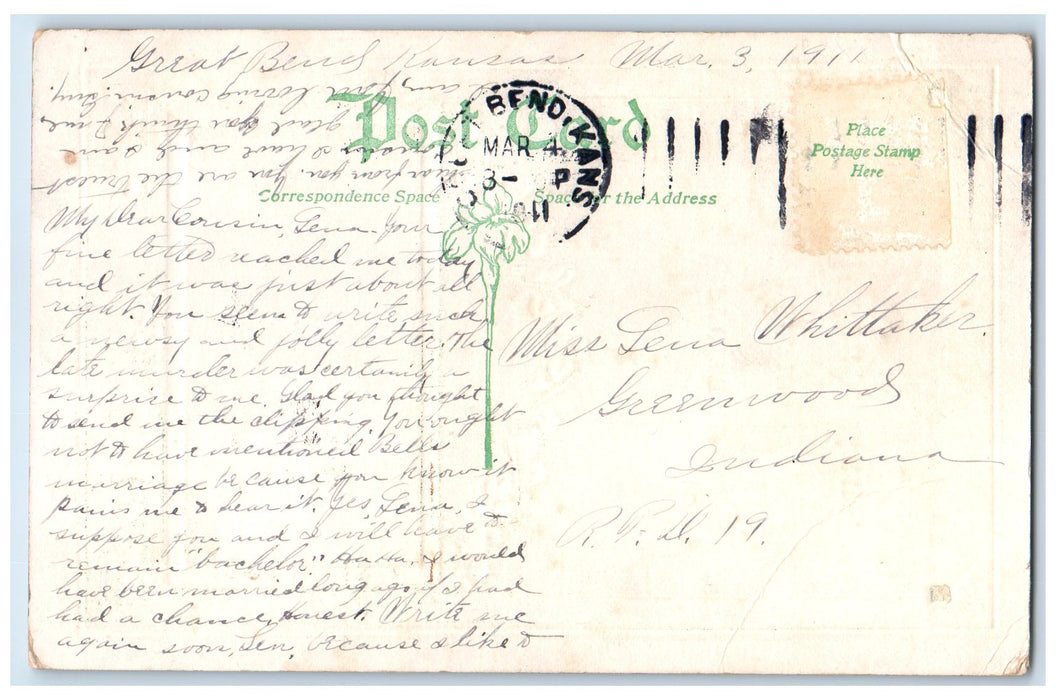 Great Bend Kansas Mar. 3, 1911
Post Card
BEND, KANS.
MAR 4
8 - P
1911
Place
Postage Stamp
Here
Correspondence Space
Space for the Address
My Dear Cousin, Lena - Your
fine letter reached me today
and it was just about all
right. You seem to write such
a newsy and jolly letter. The
late murder was certainly a
surprise to me. Glad you thought
to send me the clipping. You ought
not to have mentioned Bells
marriage because you know it
pains me to hear it. Yes, Lena, I
suppose you and I will have to
remain "bachelor" Ha Ha. I would
have been married long ago if I had
had a chance, honest. Write me
again soon, Len, because I like to
hear from you. You are the truest
cousin I have and I am
glad you think I am.
I am, your loving cousin,
Miss Lena Whittaker.
Greenwood
Indiana
R. F. D. 19.